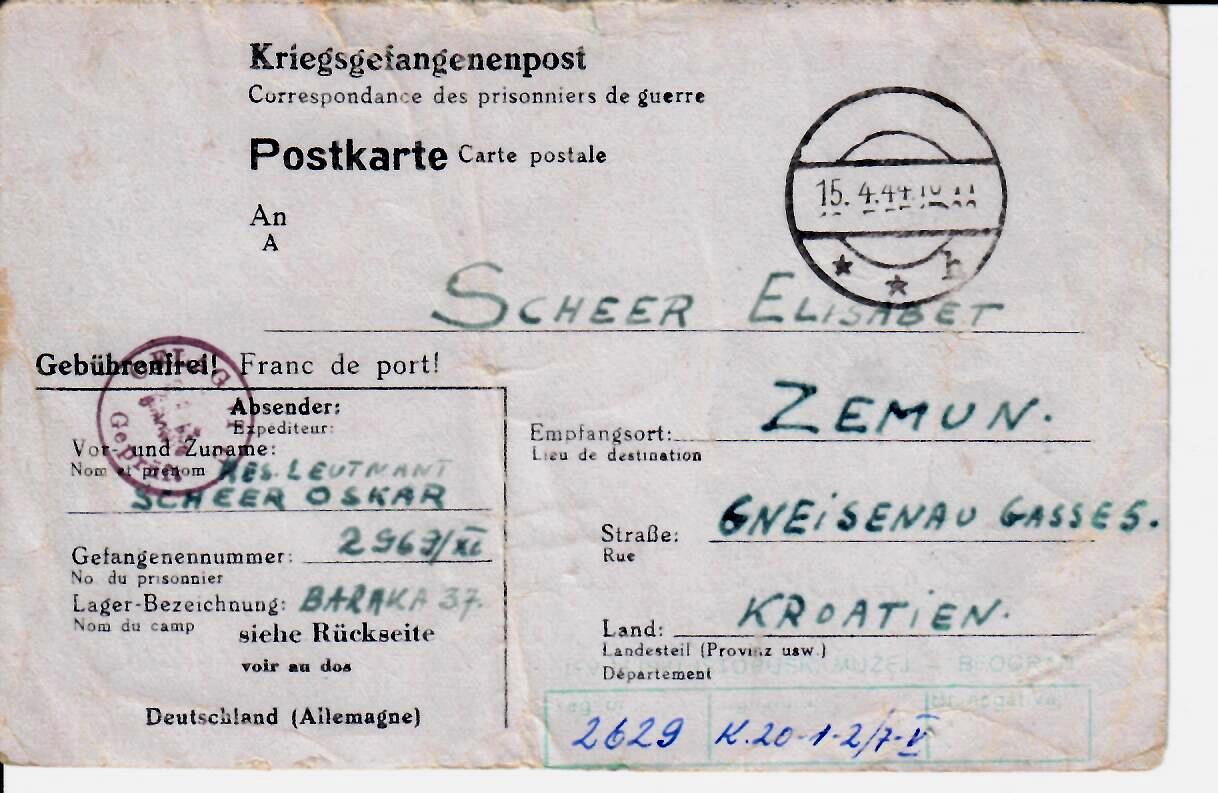 Kriegsgefangenenpost
Correspondance des prisonniers de guerre
Postkarte Carte postale
15. 4.44
An
A
h
SCHEER ELISABET
Gebührenfrei! Franc de port!
OFLAG
Geprüft
Absender:
Expediteur:
Vor- und Zuname:
Nom et prénom RES. LEUTNANT
SCHEER OSKAR
Gefangenennummer: 2969/XI
No du prisonnier
Lager-Bezeichnung: BARAKA 37.
Nom du camp
siehe Rückseite
voir au dos
Deutschland (Allemagne)
ZEMUN.
Empfangsort:
Lieu de destination
Straße: GNEISENAU GASSE 5.
Rue
Land: KROATIEN.
Landesteil (Provinz usw.)
Département
MUZEJ – BEOGRAD
2629 K.20-1-2/7-V